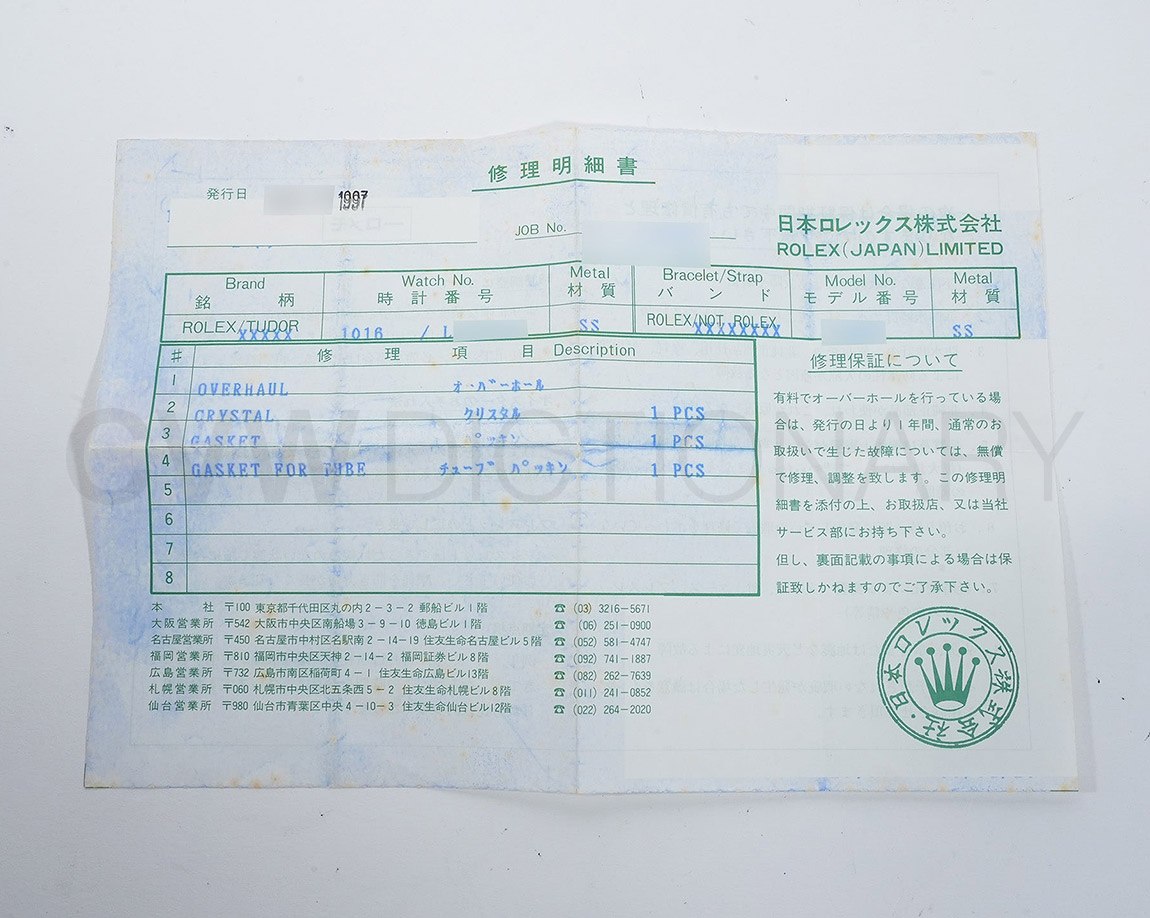 修理明細書
発行日 1997
JOB No.
日本ロレックス株式会社
ROLEX(JAPAN)LIMITED
Brand Watch No. Metal Bracelet/Strap Model No. Metal
銘柄 時計番号 材質 バンド モデル番号 材質
ROLEX/TUDOR XXXXX 1016 / L SS ROLEX/NOT ROLEX XXXXXXXXX SS
# 修理項目 Description
1 OVERHAUL オ-バ-ホ-ル
2 CRYSTAL クリスタル 1 PCS
3 GASKET パッキン 1 PCS
4 GASKET FOR TUBE チューブ パッキン 1 PCS
5
6
7
8
修理保証について
有料でオーバーホールを行っている場
合は、発行の日より1年間、通常のお
取扱いで生じた故障については、無償
で修理、調整を致します。この修理明
細書を添付の上、お取扱店、又は当社
サービス部にお持ち下さい。
但し、裏面記載の事項による場合は保
証致しかねますのでご了承下さい。
本社 〒100 東京都千代田区丸の内2-3-2 郵船ビル1階 ☎ (03) 3216-5671
大阪営業所 〒542 大阪市中央区南船場3-9-10 徳島ビル1階 ☎ (06) 251-0900
名古屋営業所 〒450 名古屋市中村区名駅南2-14-19 住友生命名古屋ビル5階 ☎ (052) 581-4747
福岡営業所 〒810 福岡市中央区天神2-14-2 福岡証券ビル8階 ☎ (092) 741-1887
広島営業所 〒732 広島市南区稲荷町4-1 住友生命広島ビル13階 ☎ (082) 262-7639
札幌営業所 〒060 札幌市中央区北五条西5-2 住友生命札幌ビル8階 ☎ (011) 241-0852
仙台営業所 〒980 仙台市青葉区中央4-10-3 住友生命仙台ビル12階 ☎ (022) 264-2020
日本ロレックス株式会社
DICTIONARY